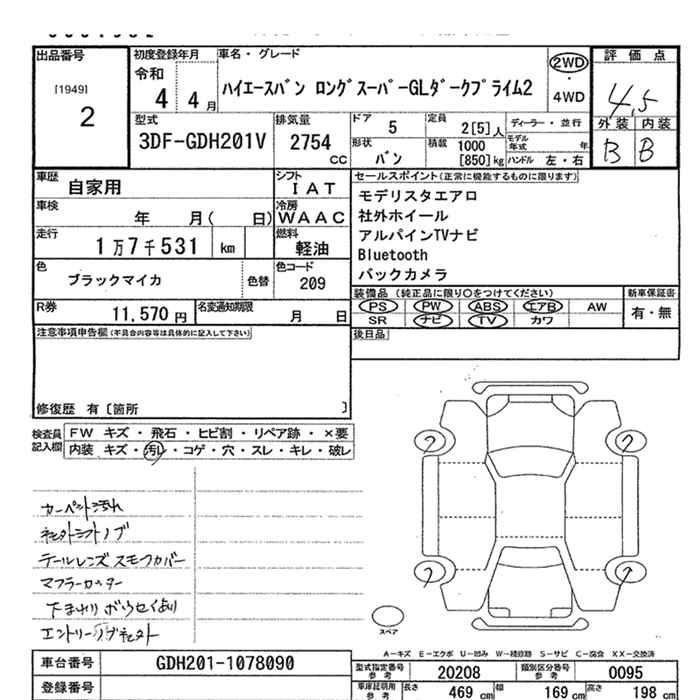 出品番号
[1949]
2
初度登録年月
令和
4 4月
車名・グレード
ハイエースバン ロングスーパーGLダークプライム2
2WD
4WD
評価点
4.5
外装 内装
B B
型式
3DF-GDH201V
排気量
2754
CC
ドア
5
定員
2[5]人
ディーラー・並行
形状
バン
積載
1000
[850]kg
モデル年式 年
ハンドル 左・右
車歴
自家用
シフト
IAT
車検
年 月( 日)
冷房
WAAC
走行
1万7千531 km
燃料
軽油
色
ブラックマイカ
色替
色コード
209
セールスポイント(正常に機能するものに限ります)
モデリスタエアロ
社外ホイール
アルパインTVナビ
Bluetooth
バックカメラ
装備品 (純正品に限り○をつけてください)
新車保証書
PS PW ABS エアB AW
SR ナビ TV カワ
有・無
R券
11,570円
名変通知期限
月 日
後日品
注意事項申告欄(不具合内容等は具体的に記入して下さい)
修復歴 有〔箇所 〕
検査員記入欄
FW キズ・飛石・ヒビ割・リペア跡・×要
内装 キズ・汚レ・コゲ・穴・スレ・キレ・破レ
カーペット汚れ
社外シフトノブ
テールレンズスモークカバー
マフラーカッター
下まわりボウセイあり
2
2
2
2
スペア
A-キズ E-エクボ U-凹み W-補修跡 S-サビ C-腐食 XX-交換済
車台番号
GDH201-1078090
登録番号
型式指定番号
参考
20208
類別区分番号
参考
0095
車庫証明用
参考
長さ
469 cm
幅
169 cm
高さ
198 cm